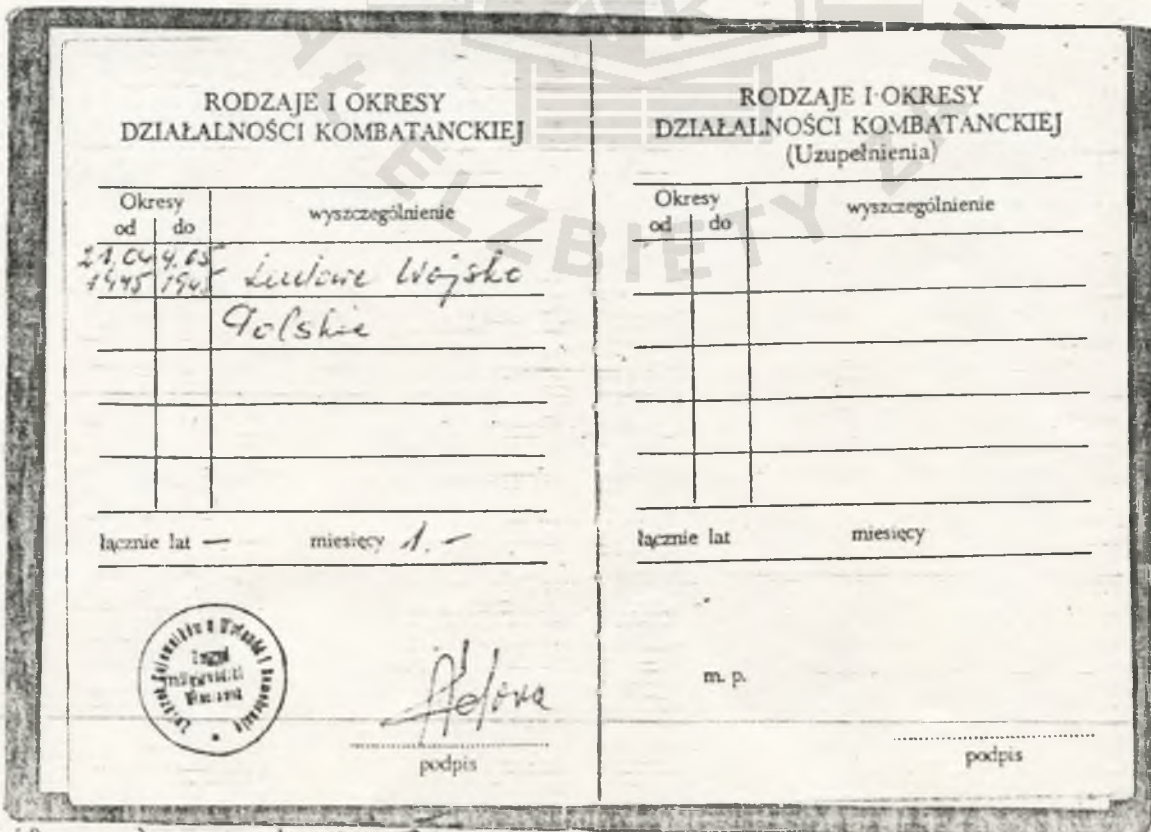 RODZAJE I OKRESY
DZIAŁALNOŚCI KOMBATANCKIEJ
Okresy
od do
wyszczególnienie
21.04 4.05
1945 1945
Ludowe Wojsko
Polskie
łącznie lat — miesięcy 1. —
podpis
RODZAJE I OKRESY
DZIAŁALNOŚCI KOMBATANCKIEJ
(Uzupełnienia)
Okresy
od do
wyszczególnienie
łącznie lat miesięcy
m. p.
podpis
ELŻBIETY